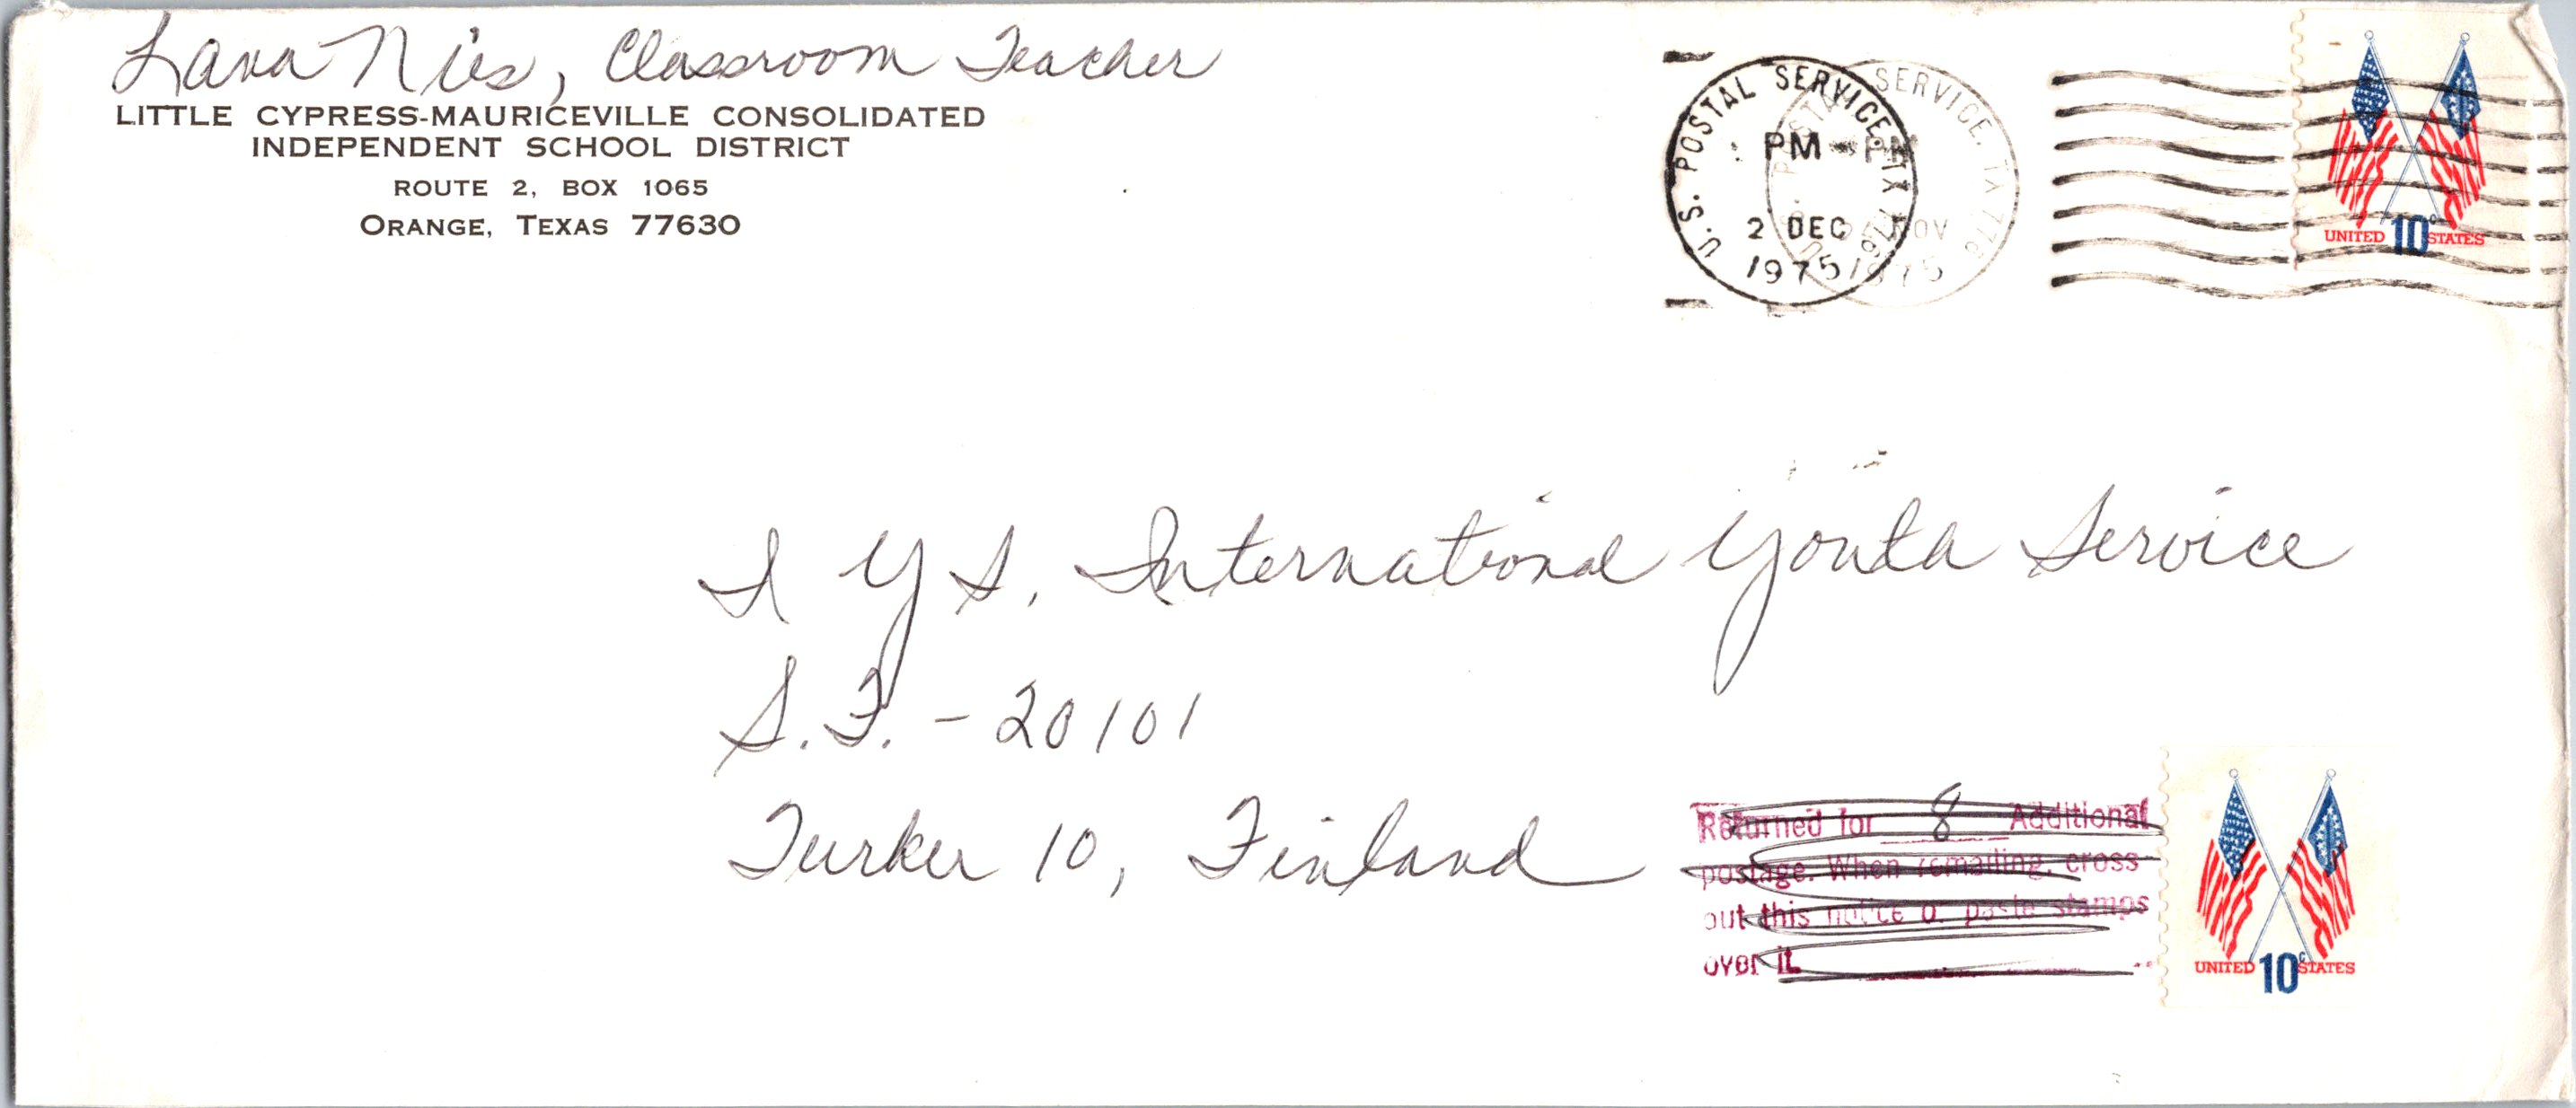 Lana Nies, Classroom Teacher
LITTLE CYPRESS-MAURICEVILLE CONSOLIDATED
INDEPENDENT SCHOOL DISTRICT
ROUTE 2, BOX 1065
ORANGE, TEXAS 77630
U.S. POSTAL SERVICE, TX 776
PM
2 DEC
1975
POSTAL SERVICE, TX 776
PM
NOV
1975
UNITED 10c STATES
I Y S, International Youth Service
S.F. - 20101
Turker 10, Finland
Returned for 8 Additional
postage. When remailing, cross
out this notice or paste stamps
over it.
UNITED 10c STATES